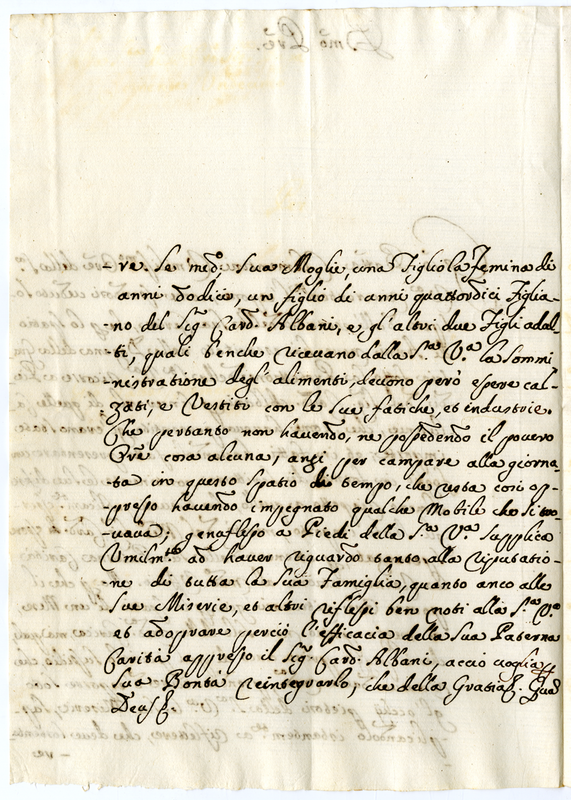 -re. Se med:º, sua Moglie, una Figliola femina di
anni dodici, un figlio di anni quattordici Figlia-
-no del Sig.r Card. Albani, e gl'altri due Figli adul-
-ti, quali benche ricevano dalla S.ª V.ª la Sommi
-nistratione degl'alimenti, devono però essere cal-
zati, e Vestiti con le sue fatiche, et industrie.
Che pertanto non havendo, ne possedendo il povero
Ore cosa alcuna, anzi per campare alla giorna
ta in questo spatio di tempo, che resta così op-
-presso havendo impegnato qualche Mobile che si tro-
-vava; genuflesso a Piedi della S.ª V.ª supplica
Umilm.te ad haver riguardo tanto alla riputatio-
-ne di tutta la Sua Famiglia, quanto anco alle
Sue Miserie, et altri riflessi ben noti alla S.ª V.ª
et adoprare perciò l'efficacia della Sua Paterna
Carità appresso il Sig.r Card. Albani, acciò voglia
Sua Bontà reintegrarlo, che della Gratia &. Quam
Deus &.